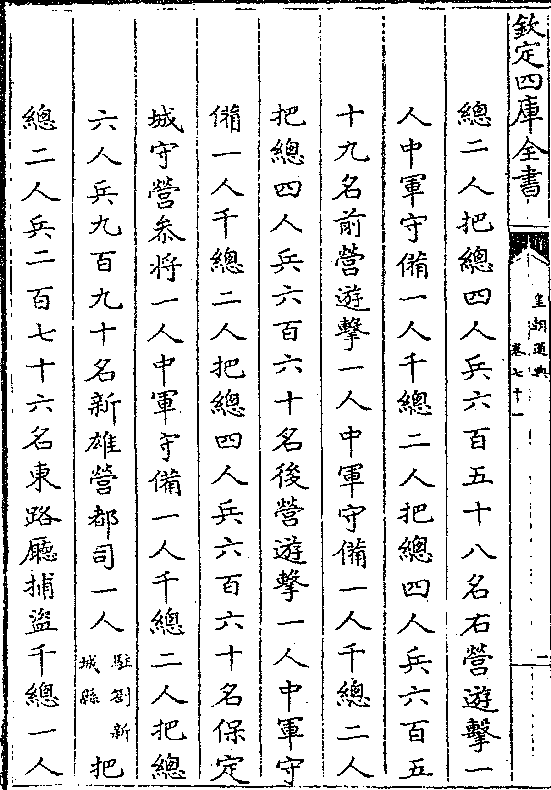 欽定四庫全書
皇朝通典
卷七十一
二
總二人把總四人兵六百五十八名右營遊擊一
人中軍守備一人千總二人把總四人兵六百五
十九名前營遊擊一人中軍守備一人千總二人
把總四人兵六百六十名後營遊擊一人中軍守
備一人千總二人把總四人兵六百六十名保定
城守營叅將一人中軍守備一人千總二人把總
六人兵九百九十名新雄營都司一人駐劄新城縣把
總二人兵二百七十六名東路廳捕盜千總一人